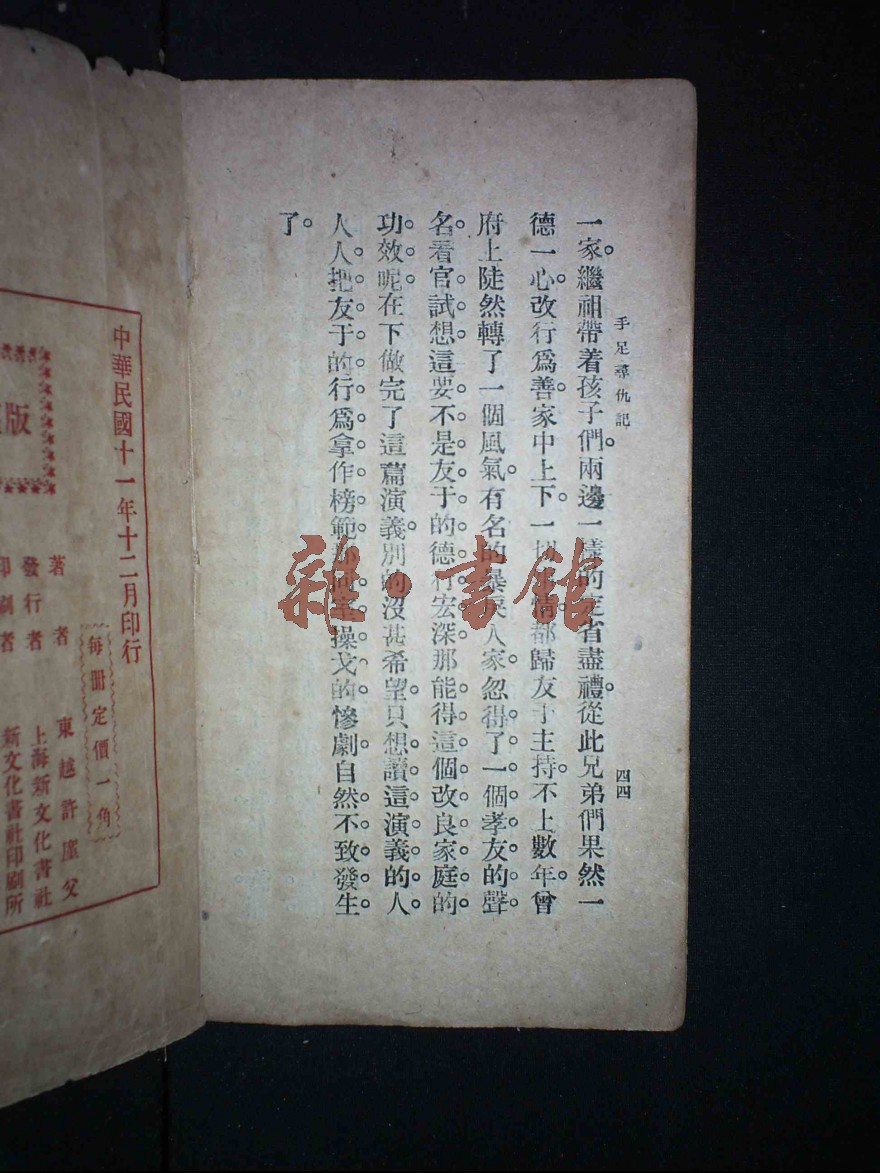 手足尋仇記
四四
一家。繼祖帶着孩子們。兩邊一樣的定省盡禮。從此兄弟們果然一
德一心。改行爲善。家中上下。一切事情。都歸友于主持。不上數年。曾
府上陡然轉了一個風氣。有名的暴戾人家。忽得了一個孝友的聲
名。看官試想這要不是友于的德行宏深。那能得這個改良家庭的
功效呢。在下做完了這篇演義。別的沒甚希望。只想讀這演義的人
人人把友于的行爲拿作榜範。那同室操戈的慘劇自然不致發生
了。
中華民國十一年十二月印行
每冊定價一角
版
著者 東越許廑父
發行者 上海新文化書社
印刷者 新文化書社印刷所
雜·書館